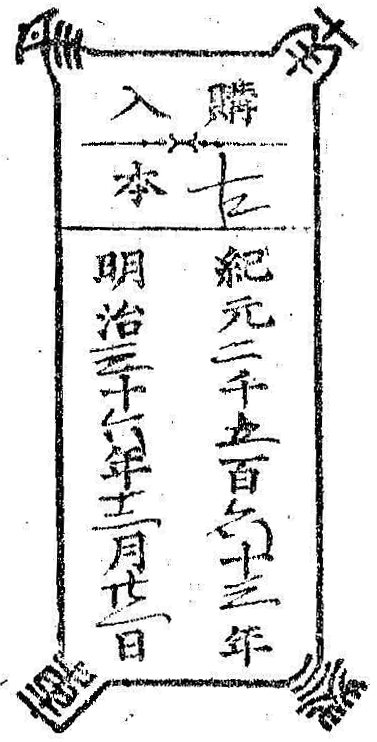 購入
古本
紀元二千五百六十三年
明治三十六年十二月廿三日